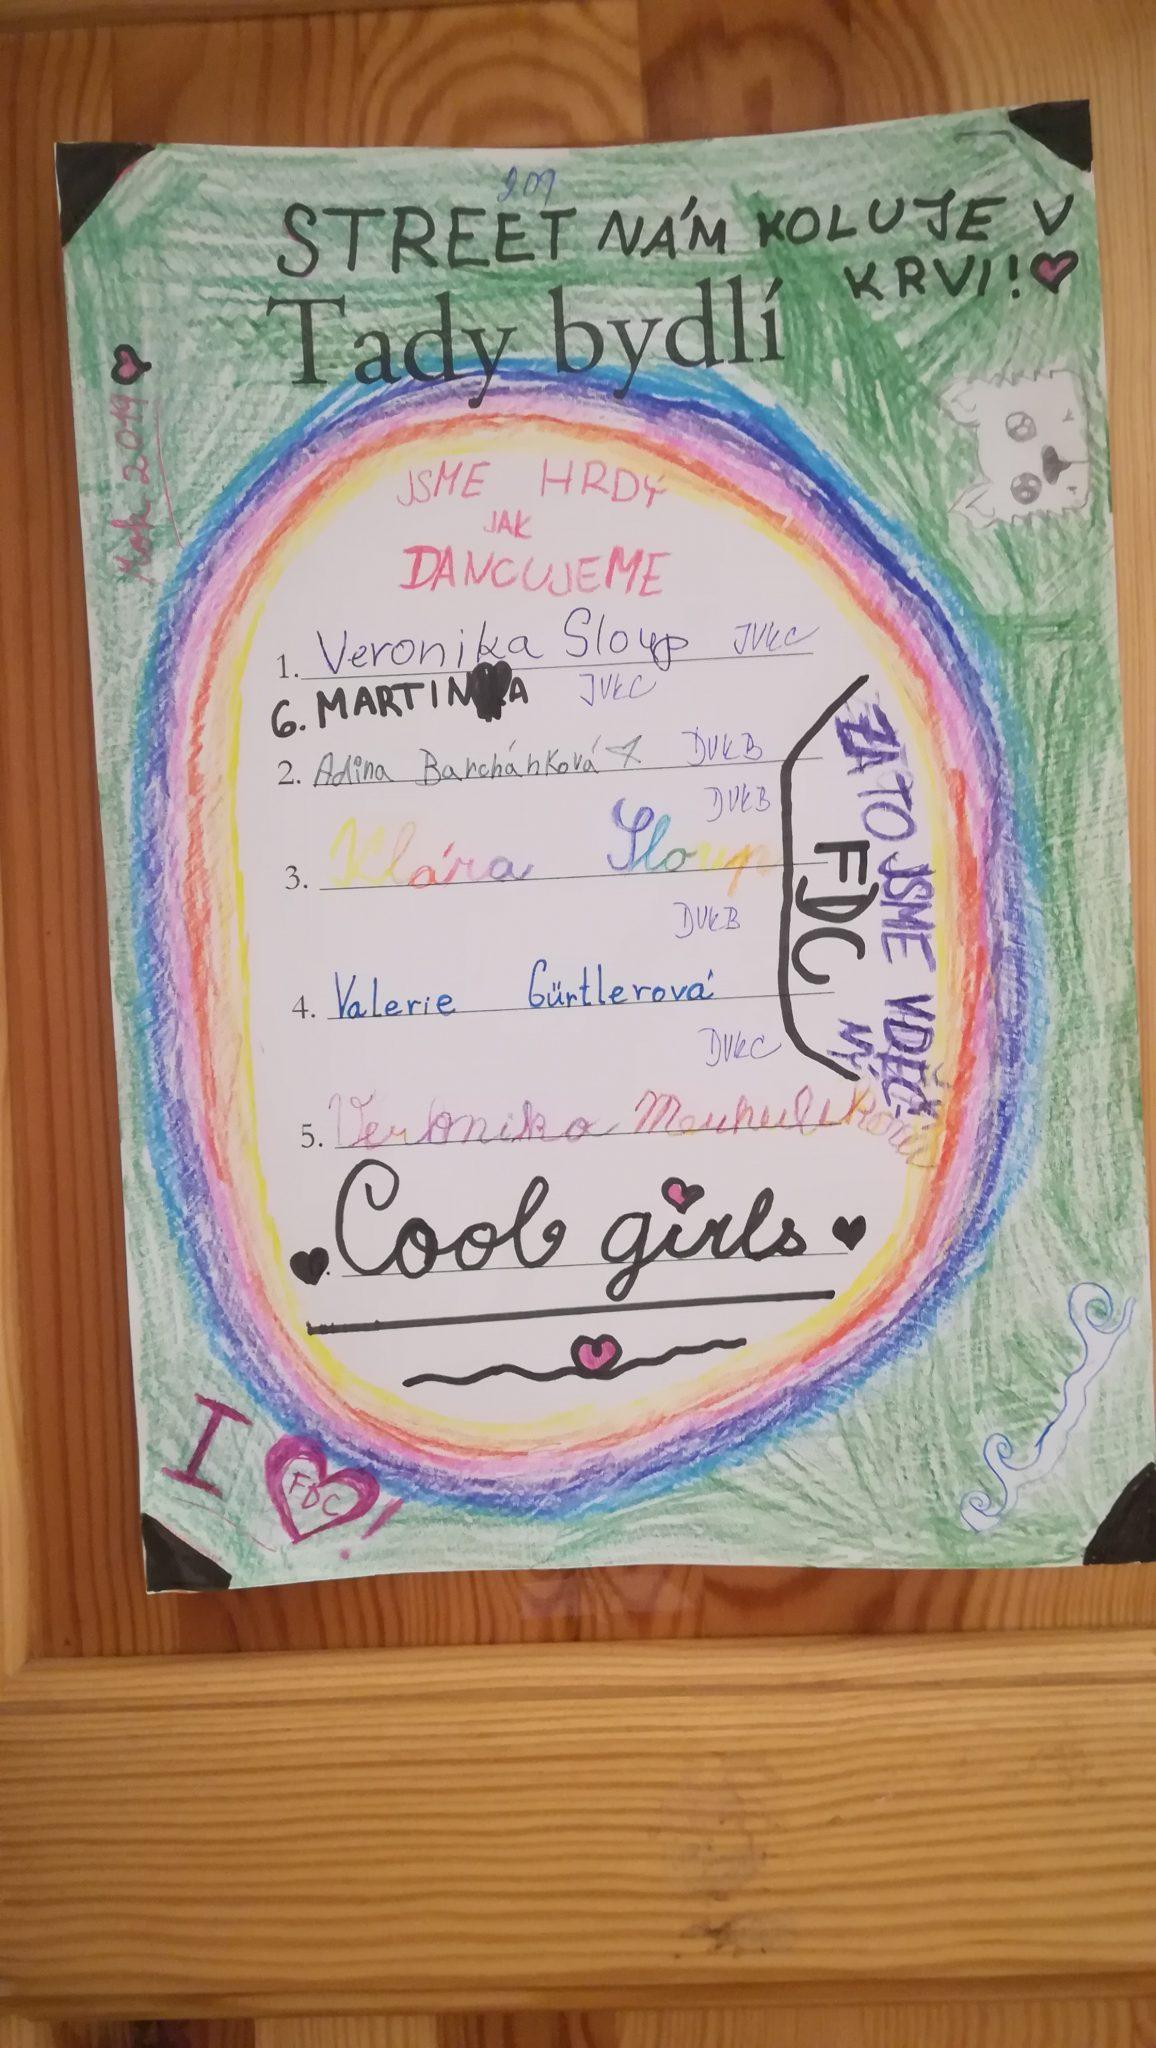 209
STREET NÁM KOLUJE V
KRVI!
Tady bydlí
2019
JSME HRDÝ
JAK
DANCUJEME
1. Veronika Sloup JVKC
6. MARTINA JVKC
2. Adina Barchánková DVKB
DVKB
3. Klára Sloup
DVKB
4. Valerie Gürtlerová
DVKC
5. Veronika
ZA TO JSME VDĚČ-
NÝ
FDC
Cool girls
I FDC!